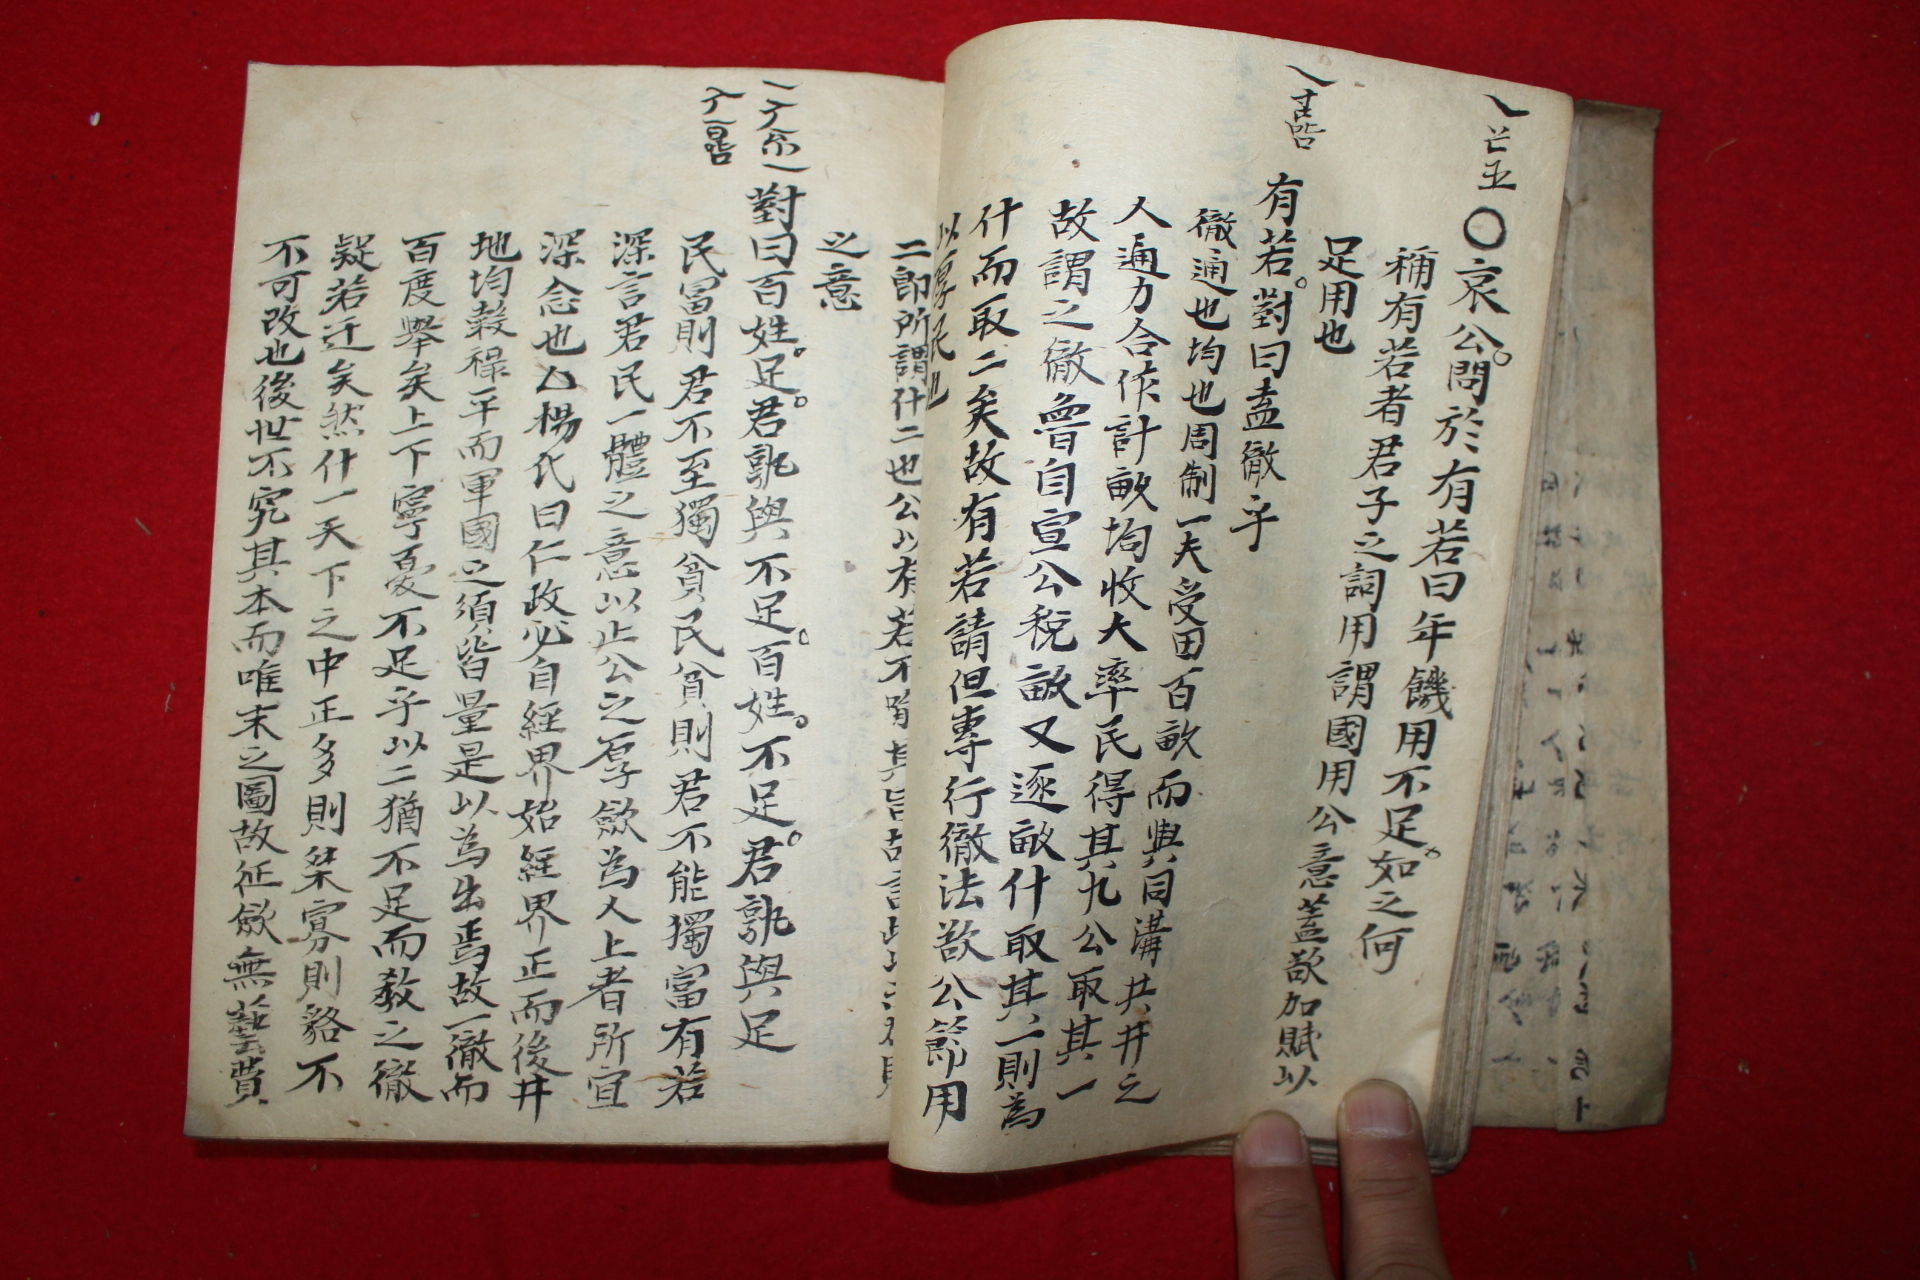 ○哀公問於有若曰年饑用不足如之何
稱有若者君子之詞用謂國用公意蓋欲加賦以
足用也
有若對曰盍徹乎
徹通也均也周制一夫受田百畝而與同溝共井之
人通力合作計畝均收大率民得其九公取其一
故謂之徹魯自宣公稅畝又逐畝什取其一則為
什而取二矣故有若請但專行徹法欲公節用
以厚民也
二即所謂什二也公以有若不喩其旨故言此
之意
對曰百姓足君孰與不足百姓不足君孰與足
民富則君不至獨貧民貧則君不能獨富有若
深言君民一體之意以止公之厚歛為人上者所宜
深念也乙楊氏曰仁政必自經界始經界正而後井
地均穀祿平而軍國之須皆量是以為出焉故一徹而
百度擧矣上下寧憂不足乎以二猶不足而敎之徹
疑若迂矣然什一天下之中正多則桀寡則貉不
不可改也後世不究其本而唯末之圖故征歛無藝費